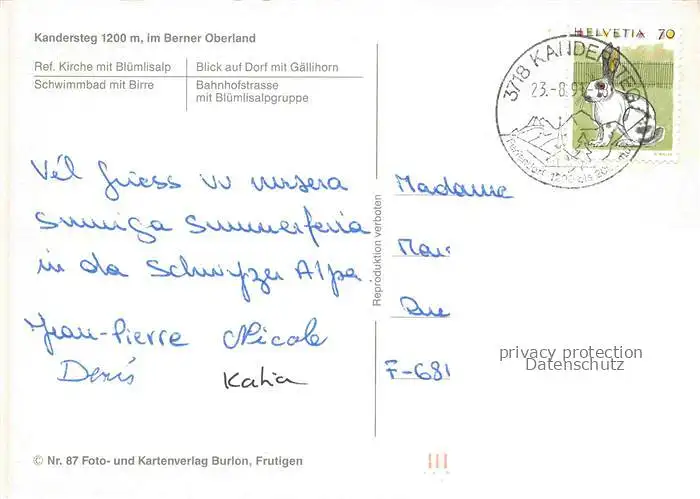 Kandersteg 1200 m, im Berner Oberland
Ref. Kirche mit Blümlisalp
Blick auf Dorf mit Gällihorn
Schwimmbad mit Birre
Bahnhofstrasse
mit Blümlisalpgruppe
HELVETIA 70
3718 KANDERSTEG
23.-8.91
Vél Griess vu unsera
Sunniga Summerferia
in da Schwyzer Alpa.
Jean-Pierre Nicole
Denis Katia
Reproduktion verboten
Madame
Rue
F-681
privacy protection
Datenschutz
© Nr. 87 Foto- und Kartenverlag Burlon, Frutigen